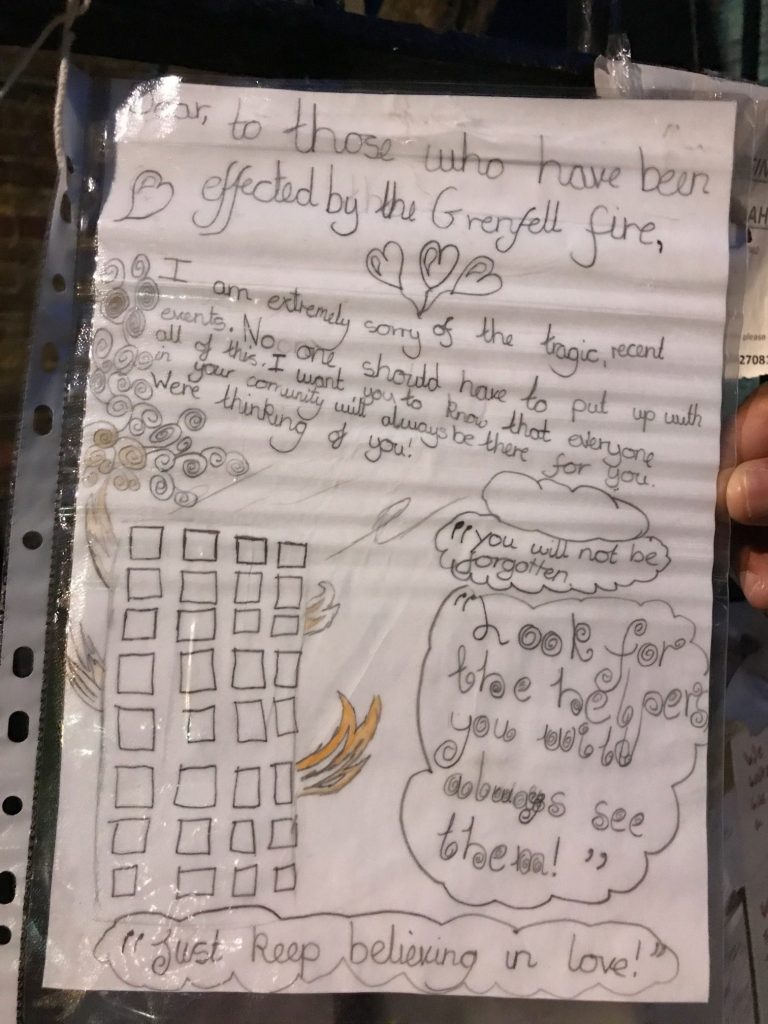 Dear, to those who have been
effected by the Grenfell fire,
I am extremely sorry of the tragic, recent
events. No one should have to put up with
all of this. I want you to know that everyone
in your comunity will always be there for you.
Were thinking of you!
"you will not be
forgotten
"Look for
the helpers
you will
always see
them!"
"Just keep believing in love!"
please
2708